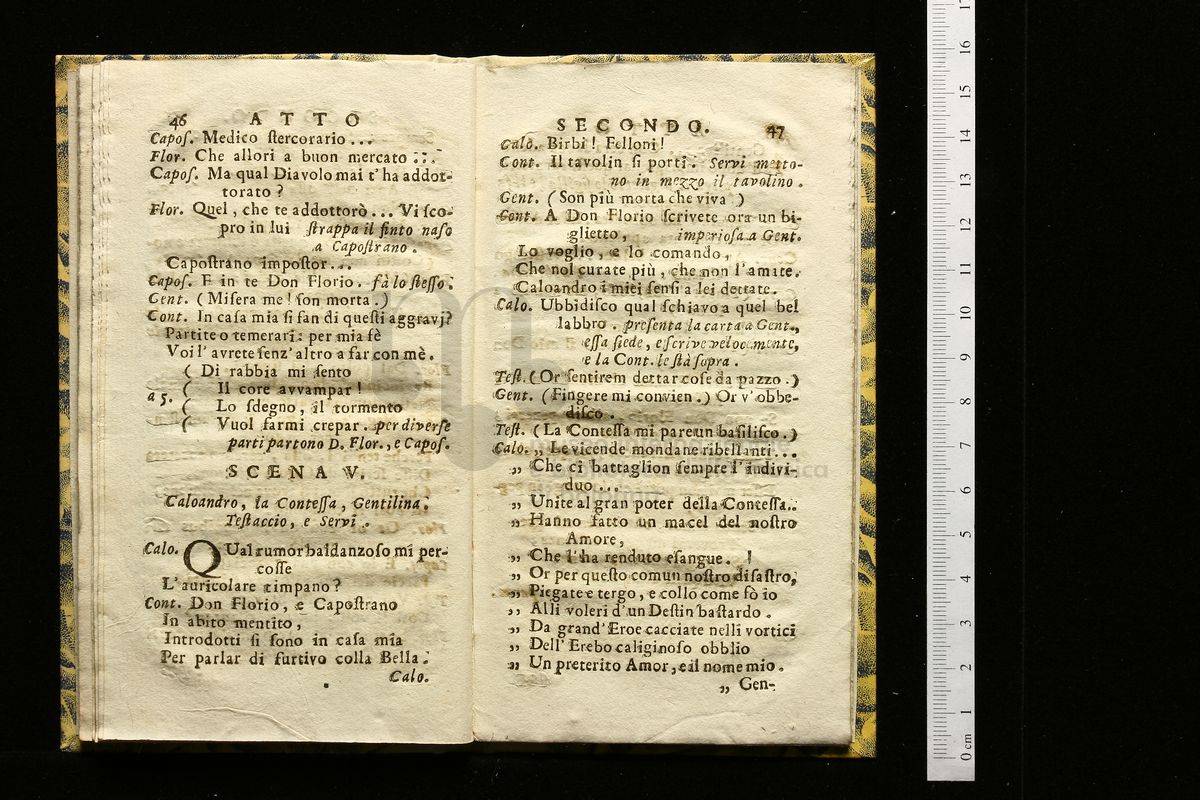 46 ATTO
Capoſ. Medico ſtercorario ...
Flor. Che allori a buon mercato ...
Capoſ. Ma qual Diavolo mai t' ha addot-
torato ?
Flor. Quel , che te addottorò ... Vi ſco-
pro in lui ſtrappa il finto naſo
a Capoſtrano .
Capoſtrano impoſtor ...
Capoſ. E in te Don Florio . fà lo ſteſſo .
Gent. ( Miſera me ! ſon morta . )
Cont. In caſa mia ſi fan di queſti aggravj ?
Partite o temerari : per mia fè
Voi l' avrete ſenz' altro a far con mè .
( Di rabbia mi ſento
( Il core avvampar !
a 5. ( Lo ſdegno , il tormento
( Vuol farmi crepar . per diverſe
parti partono D. Flor. , e Capoſ.
SCENA V.
Caloandro , la Conteſſa , Gentilina ,
Teſtaccio , e Servi .
Calo. QUal rumor baldanzoſo mi per-
coſſe
L' auricolare timpano ?
Cont. Don Florio , e Capoſtrano
In abito mentito ,
Introdotti ſi ſono in caſa mia
Per parlar di furtivo colla Bella .
Calo.
SECONDO. 47
Calo. Birbi ! Felloni !
Cont. Il tavolin ſi porti . Servi metto-
no in mezzo il tavolino .
Gent. ( Son più morta che viva )
Cont. A Don Florio ſcrivete ora un bi-
glietto , imperioſa a Gent.
Lo voglio , e lo comando ,
Che nol curate più , che non l' amate .
Caloandro i miei ſenſi a lei dettate .
Calo. Ubbidiſco qual ſchiavo a quel bel
labbro . preſenta la carta a Gent. ,
eſſa ſiede , e ſcrive velocemente ,
e la Cont. le ſtà ſopra .
Teſt. ( Or ſentirem dettar coſe da pazzo . )
Gent. ( Fingere mi convien . ) Or v' obbe-
diſco .
Teſt. ( La Conteſſa mi pare un baſiliſco . )
Calo. „ Le vicende mondane ribellanti ...
„ Che ci battaglion ſempre l' indivi-
duo ...
„ Unite al gran poter della Conteſſa ..
„ Hanno fatto un macel del noſtro
Amore ,
„ Che l' ha renduto eſangue . !
„ Or per queſto comun noſtro diſaſtro ,
„ Piegate e tergo , e collo come fò io
„ Alli voleri d' un Deſtin baſtardo .
„ Da grand' Eroe cacciate nelli vortici
„ Dell' Erebo caliginoſo obblio
„ Un preterito Amor , e il nome mio .
„ Gen-
0 cm 1 2 3 4 5 6 7 8 9 10 11 12 13 14 15 16 17